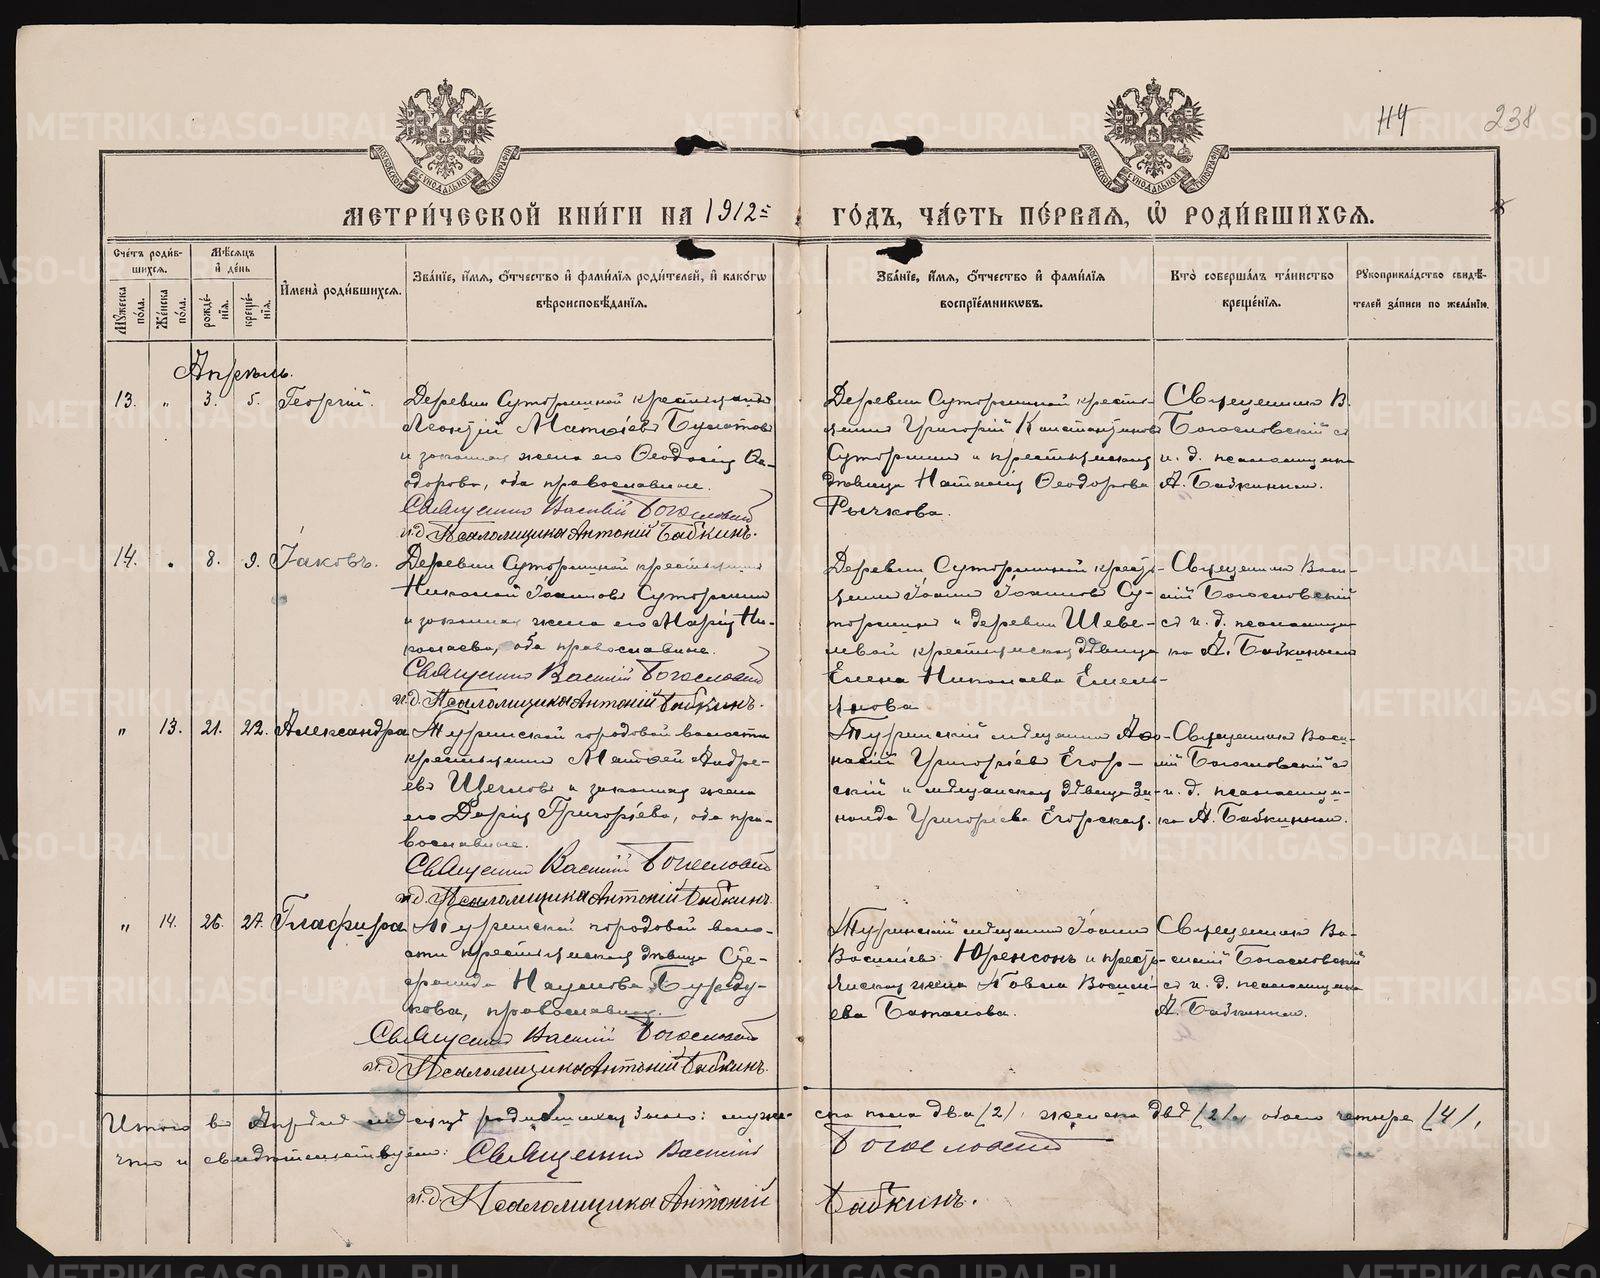 114 238
МЕТРИ́ЧЕСКОЙ КНИ́ГИ НА 1912й ГО́ДЪ, ЧА́СТЬ ПЕ́РВАЯ, Ѡ҆ РОДИ́ВШИХСЯ.
Сче́тъ роди́вшихся.
Му́жеска по́ла.
Же́нска по́ла.
Мѣ́сяцъ и҆ де́нь
рожде́нїѧ.
креще́нїѧ.
И҆мена̀ роди́вшихсѧ.
Зва́нїе, и҆́мѧ, ѻ҆́тчество и҆ фами́лїѧ роди́телей, и҆ како́гѡ
вѣроисповѣ́данїѧ.
Зва́нїе, и҆́мѧ, ѻ҆́тчество и҆ фами́лїѧ
воспрїе́мникѡвъ.
Кто̀ соверша́лъ та́инство
креще́нїѧ.
Рꙋкоприкла́дство свидѣ́телей за́писи по жела́нїю.
Апрѣль.
13. " 3. 5. Георгій.
Деревни Суториной крестьянинъ
Леонтій Матѳіевъ Булатовъ
и законная жена его Ѳеодосія Ѳе-
одорова, оба православные.
Священникъ Василій Богословскій
и.д. Псаломщика Антоній Бабкинъ.
Деревни Суториной кресть-
янинъ Григорій Константиновъ
Суторинъ и крестьянская
дѣвица Наталія Ѳеодорова
Рычкова.
Священникъ В.
Богословскій съ
и. д. псаломщика
А. Бабкинымъ.
14. " 8. 9. Іаковъ.
Деревни Суториной крестьянинъ
Николай Іоанновъ Суторинъ
и законная жена его Марія Ни-
колаева, оба православные.
Священникъ Василій Богословскій
и.д. Псаломщика Антоній Бабкинъ.
Деревни Суториной кресть-
янинъ Іоаннъ Іоанновъ Су-
торинъ и деревни Шеве-
левой крестьянская дѣвица
Елена Николаева Емель-
янова.
Священникъ Васи-
лій Богословскій
съ и. д. псаломщи-
ка А. Бабкинымъ
" 13. 21. 22. Александра
Туринской городовой волости
крестьянинъ Матѳей Андре-
евъ Щегловъ и законная жена
его Дарія Григорьева, оба пра-
вославные.
Священникъ Василій Богословскій
и.д. Псаломщика Антоній Бабкинъ.
Туринскій мѣщанинъ Аѳа-
насій Григорьевъ Егор-
скій и мѣщанская дѣвица Зи-
наида Григорьева Егорская.
Священникъ Васи-
лій Богословскій съ
и. д. псаломщи-
ка А. Бабкинымъ.
" 14. 26. 27. Глафира
Туринской городовой воло-
сти крестьянская дѣвица Се-
рафима Наумова Бурду-
кова, православная.
Священникъ Василій Богословскій
и.д. Псаломщика Антоній Бабкинъ.
Туринскій мѣщанинъ Іоаннъ
Васильевъ Юренсонъ и кресть-
янская жена Павла Василь-
ева Баталова.
Священникъ Ва-
силій Богословскій
съ и. д. псаломщика
А. Бабкинымъ.
Итого въ Апрѣлѣ мѣсяцѣ родившихся было: муже- ска пола два (2), женска двѣ (2), обоего четыре (4),
что и свидѣтельствуемъ: Священникъ Василій Богословскій
и.д. Псаломщика Антоній Бабкинъ.